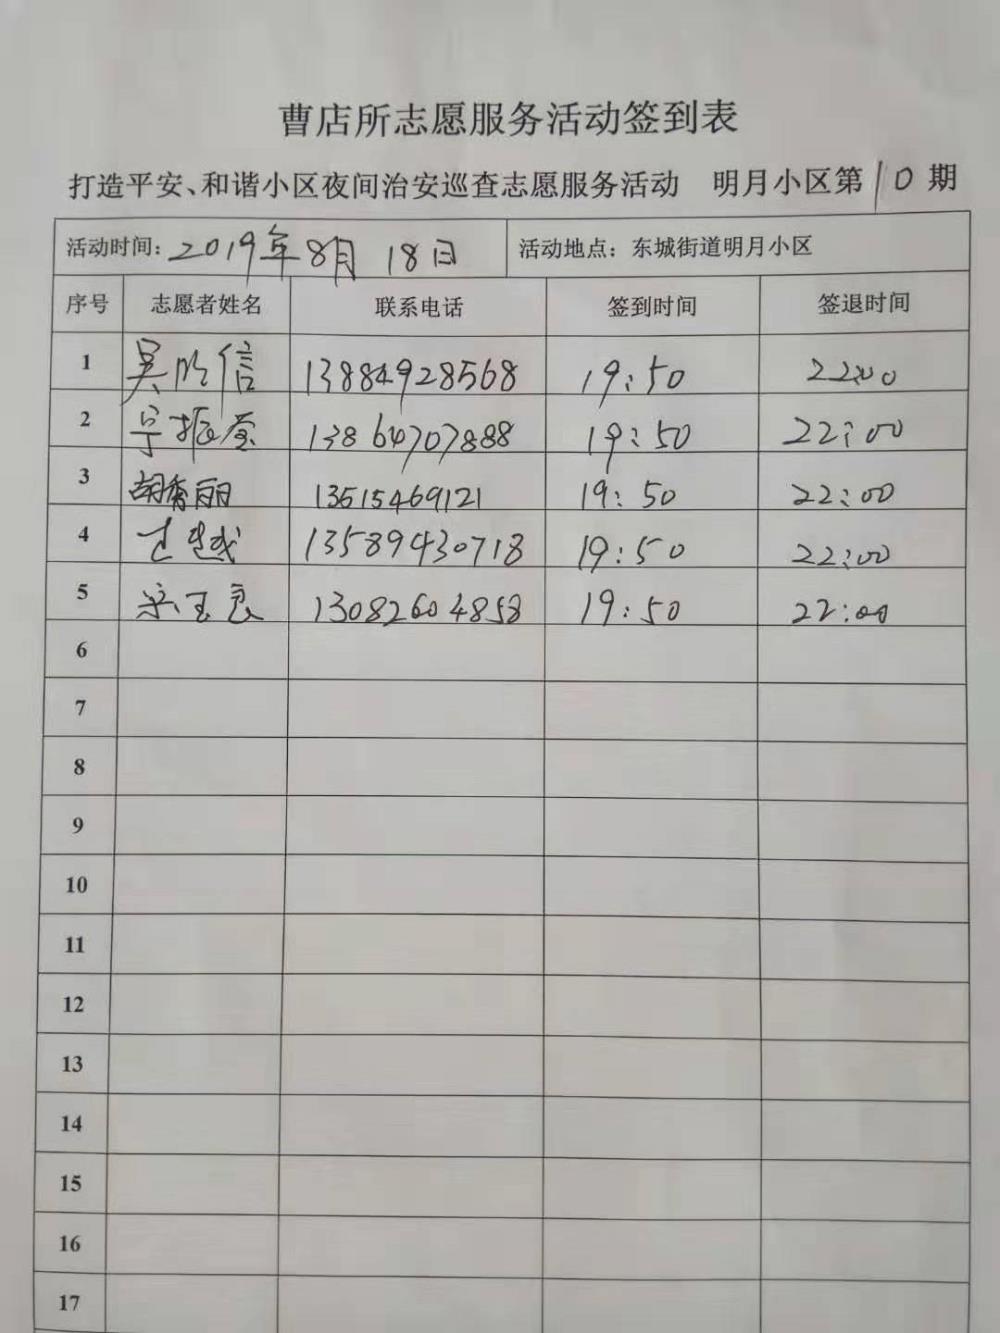 曹店所志愿服务活动签到表
打造平安、和谐小区夜间治安巡查志愿服务活动 明月小区第10期
活动时间: 2019年8月18日 活动地点: 东城街道明月小区
序号 志愿者姓名 联系电话 签到时间 签退时间
1 13884928568 19:50 22:00
2 13864707888 19:50 22:00
3 胡秀丽 13615469121 19:50 22:00
4 13589430718 19:50 22:00
5 宋玉良 13082604858 19:50 22:00
6
7
8
9
10
11
12
13
14
15
16
17